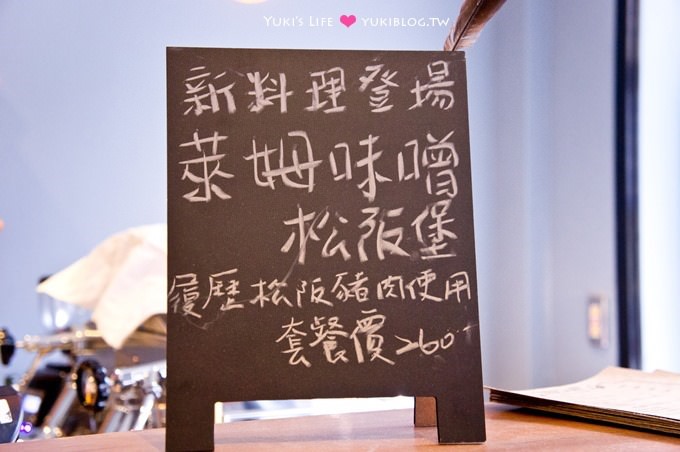 YUKI'S LIFE ❤ YUKIBLOG.TW
新料理登場
萊姆味噌
松阪堡
履歷松阪豬肉使用
套餐價260